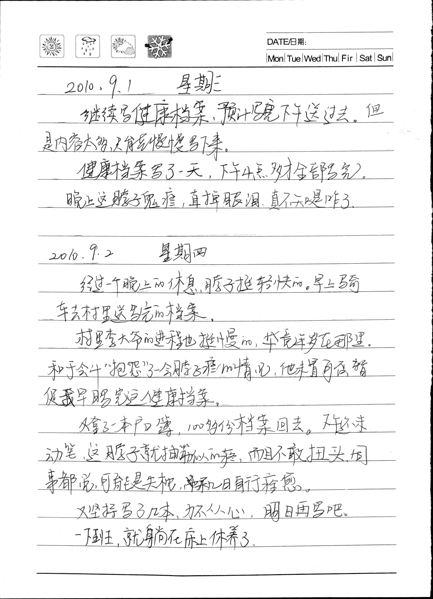 DATE/日期:
Mon Tue Wed Thu Fir Sat Sun
2010.9.1 星期三
继续写健康档案,预计写完下午送过去。但
是内容太多,只能慢慢写下来。
健康档案写了一天,下午4点多才全部写完。
晚上这脖子鬼疼,直掉眼泪,真不知是咋了。
2010.9.2 星期四
经过一个晚上的休息,脖子挺轻快的。早上骑
车去村里送写完的档案。
村里李大爷的进程也挺慢的,毕竟年岁在那里。
和于会计“抱怨”了一会脖子疼的情况,他
促我早点写完这健康档案。
拿了一本户口簿,100多份档案回去。
动笔,这脖子就抽筋似的疼,而且不敢扭头,同
事都说,可能是失枕,自行痊愈。
又坚持写了几本,力不从心,明日再写吧。
一下班,就躺在床上休养了。